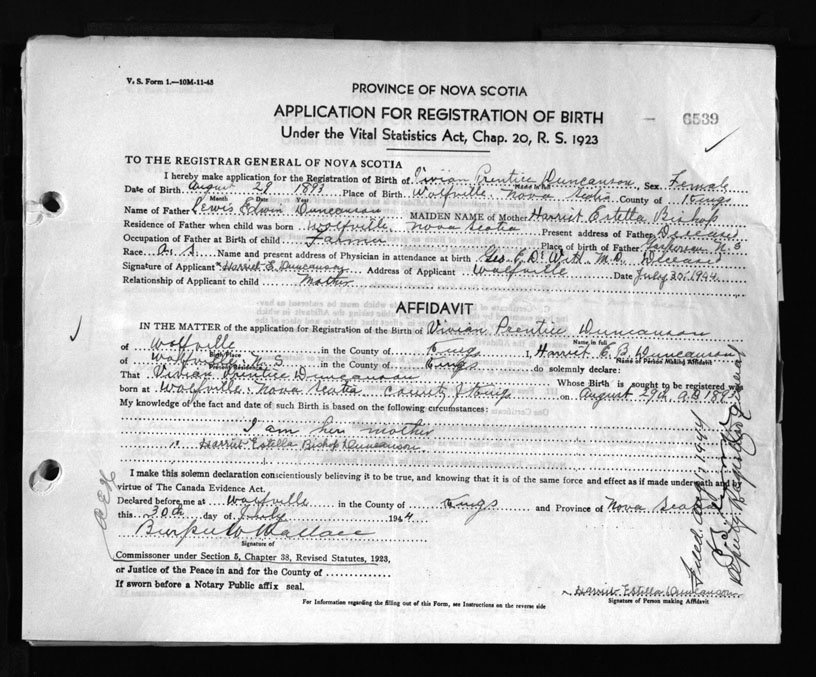 V. S. Form 1.—10M-11-43
PROVINCE OF NOVA SCOTIA
APPLICATION FOR REGISTRATION OF BIRTH — 6539
Under the Vital Statistics Act, Chap. 20, R. S. 1923
TO THE REGISTRAR GENERAL OF NOVA SCOTIA
I hereby make application for the Registration of Birth of Vivian Prentice Duncanson, Sex Female
Name in full
Date of Birth August 29 Place of Birth Wolfville Nova Scotia County of Kings
Month Date Year
Name of Father Lewis Edwin Duncanson MAIDEN NAME of Mother Harriet Estella Bishop
Residence of Father when child was born Wolfville Nova Scotia Present address of Father Deceased
Occupation of Father at Birth of child Farmer Place of birth of Father N. S
Race Name and present address of Physician in attendance at birth Geo. E. De Witt M.D. Deceased
Signature of Applicant Harriet E. Duncanson Address of Applicant Wolfville Date July 25, 1944
Relationship of Applicant to child Mother
AFFIDAVIT
IN THE MATTER of the application for Registration of the Birth of Vivian Prentice Duncanson
Name in full
of Wolfville in the County of Kings I, Harriet E. B. Duncanson
Birth Place Name of Person making Affidavit
of Wolfville, N. S in the County of Kings do solemnly declare:
Present Residence
That Vivian Prentice Duncanson Whose Birth is sought to be registered was
born at Wolfville Nova Scotia County Kings on August 29th A.D.
My knowledge of the fact and date of such Birth is based on the following circumstances:
I am her mother
Harriet Estella Bishop Duncanson
I make this solemn declaration conscientiously believing it to be true, and knowing that it is of the same force and effect as if made under oath and by
virtue of The Canada Evidence Act.
Declared before me at Wolfville in the County of Kings and Province of Nova Scotia
this 30th day of July 1944
Burpee W Wallace
Signature of
Commissoner under Section 5, Chapter 38, Revised Statutes, 1923,
or Justice of the Peace in and for the County of
If sworn before a Notary Public affix seal.
Harriet Estella Duncanson
Signature of Person making Affidavit
For Information regarding the filling out of this Form, see Instructions on the reverse side
Filed Aug 1944
Deputy Registrar General